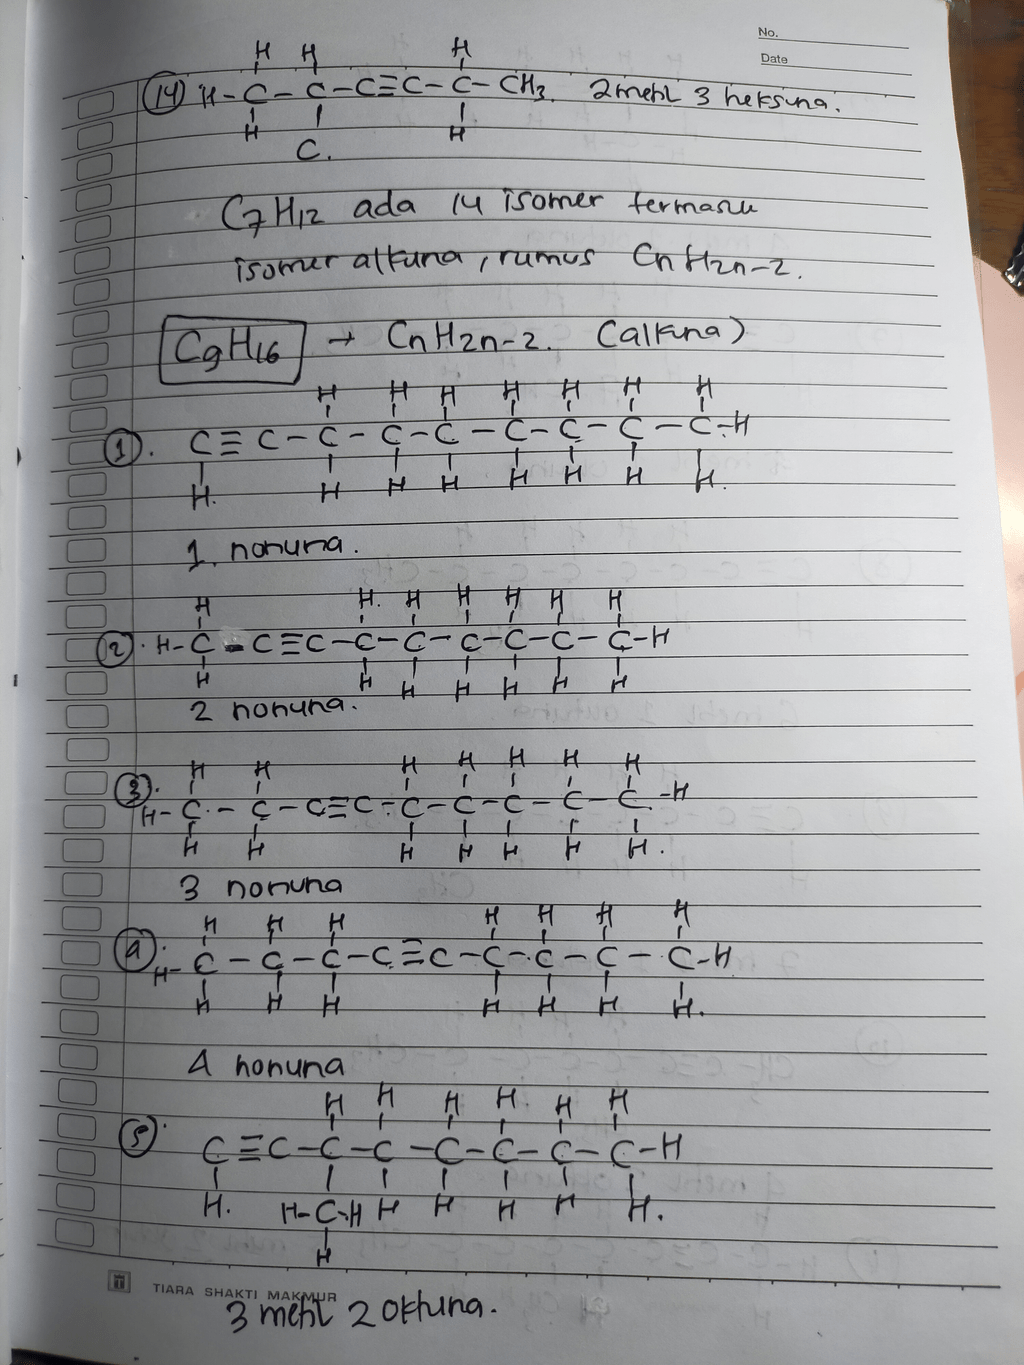 No.
Date
H H H
(14) H - C - C - C ≡ C - C - CH3. 2 metil 3 heksuna.
H H
C.
C7H12 ada 14 isomer termasuk
isomer alkuna, rumus CnH2n-2.
C9H16 → CnH2n-2. (alkuna)
H H H H H H H
(1). C ≡ C - C - C - C - C - C - C - C - H
H. H H H H H H H.
1. nonuna.
H H. H H H H H
(2). H - C - C ≡ C - C - C - C - C - C - C - H
H H H H H H H
2 nonuna.
H H H H H H H
(3). H - C - C - C ≡ C - C - C - C - C - C - H
H H H H H H H.
3 nonuna
H H H H H H H
(4). H - C - C - C - C ≡ C - C - C - C - C - H
H H H H H H H.
4 nonuna
H H H H. H H
(5). C ≡ C - C - C - C - C - C - C - H
H. H-C-H H H H H H.
H
TIARA SHAKTI MAKMUR
3 metil 2 oktuna.